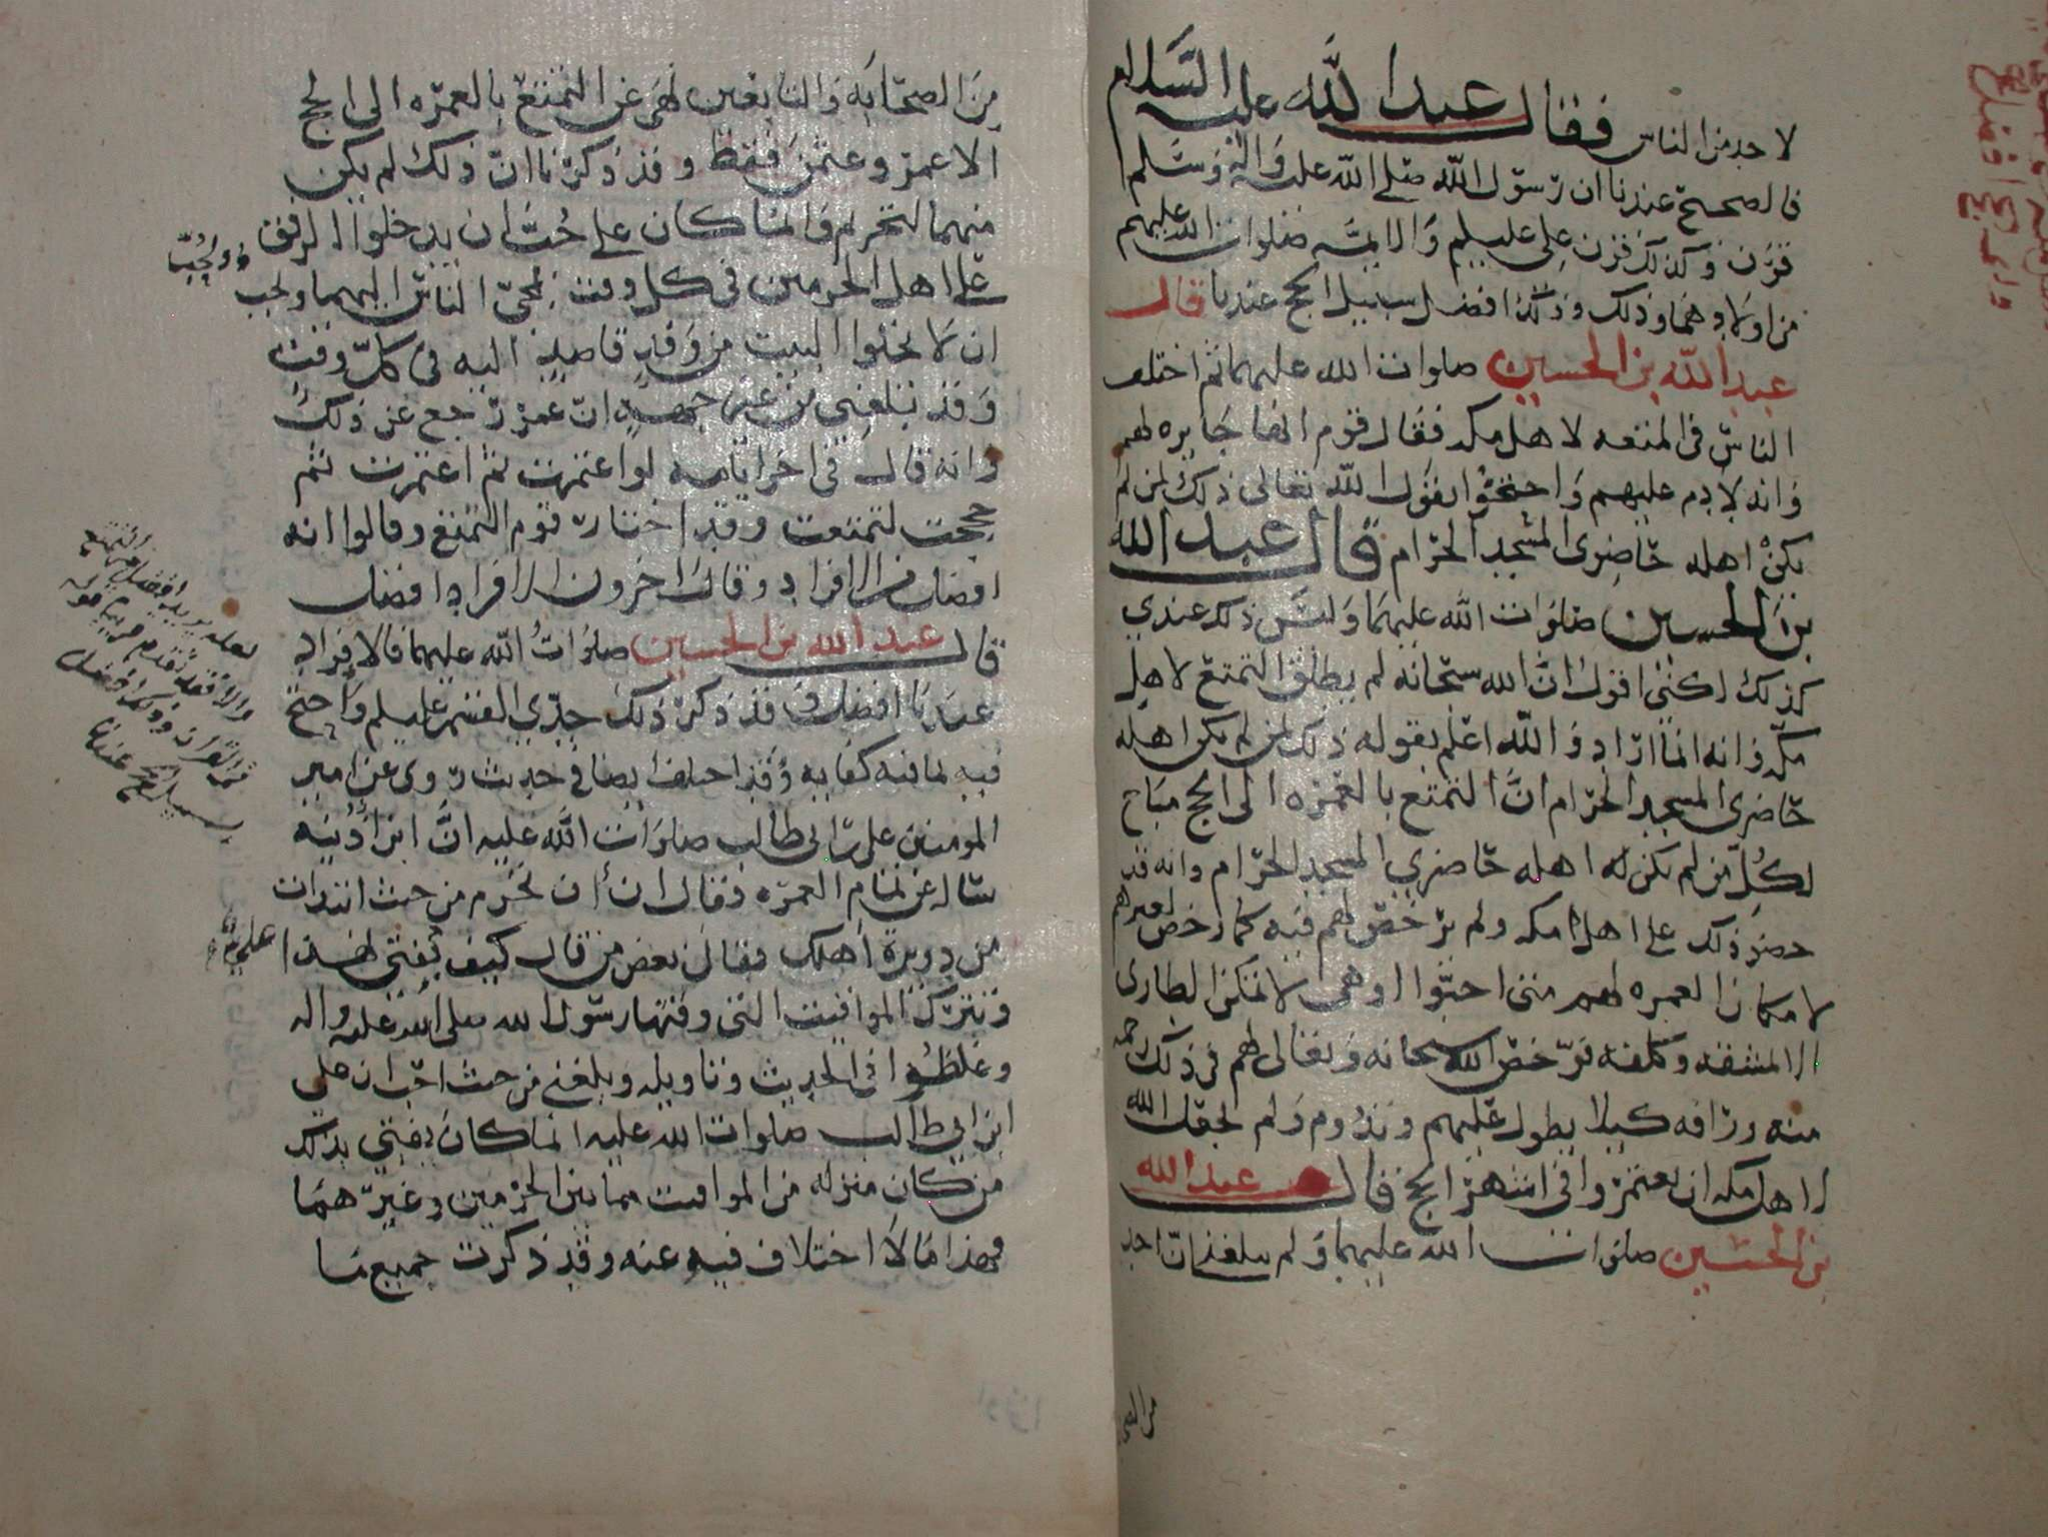 لاحد من الناس فقال عبد الله عليه السلام
فالصحيح عندنا ان رسول الله صلى الله عليه واله وسلم
قرن وكذلك قرن علي عليلم والايمه صلوات الله عليهم
من اولادهما وذلك وذلك افضل سبيل الحج عندنا قال
عبد الله بن الحسين صلوات الله عليهما ثم اختلف
الناس في المتعه لاهل مكه فقال قوم انها جايزه لهم
وانه لا دم عليهم واحتجوا بقول الله تعالى ذلك لمن لم
يكن اهله حاضري المسجد الحرام قال عبد الله
بن الحسين صلوات الله عليهما وليس ذلك عندي
كذلك لكنني اقول ان الله سبحانه لم يطلق التمتع لاهل
مكه وانه انما اراد والله اعلم بقوله ذلك لمن لم يكن اهله
حاضري المسجد الحرام ان التمتع بالعمره الى الحج مباح
لكل من لم يكن له اهله حاضري المسجد الحرام وانه قد
حضر ذلك على اهل مكه ولم يرخص لهم فيه كما رخص لغيرهم
لامكان العمره لهم متى احبوا اذ هي لا تمكن الطاري
الا لمشقه وكلفه فرخص الله سبحانه وتعالى لهم في ذلك رحمه
منه ورافه كيلا يطول عليهم وتدوم ولم يجعل الله
لاهل مكه ان يعتمروا في اشهر الحج قال عبد الله
بن الحسين صلوات الله عليهما ولم يبلغنا ان احد
من الصحا
من الصحابه والتابعين نهى عن التمتع بالعمره الى الحج
الا عمر وعثمن فقط وقد ذكرنا ان ذلك لم يكن
منهما لتحريم وانما كان على حب ان يدخلوا الرفق
على اهل الحرمين في كل وقت لمجي الناس اليهما ولحب
ان لا يخلوا البيت من وفد قاصد اليه في كل وقت
وقد بلغني من غير جهه ان عمر رجع عن ذلك
وانه قال في اخر ايامه لو اعتمرت ثم اعتمرت ثم
حججت لتمتعت وقد اختار قوم التمتع وقالوا انه
افضل من الافراد وقال اخرون الافراد افضل
قال عبد الله بن الحسين صلوات الله عليهما فالافراد
عندنا افضل وقد ذكر ذلك جدي القسم عليلم واحتج
فيه بما فيه كفايه وقد اختلف ايضا في حديث روي عن امير
المومنين علي بن ابي طالب صلوات الله عليه ان ابن اذينه
ساله عن تمام العمره فقال ان تحرم من حيث ابتدات
من دويرة اهلك فقال بعض من قال كيف يفتي بهذا
وتترك المواقيت التي وقتها رسول الله صلى الله عليه واله
وغلطوا في الحديث وتاويله وبلغني من حيث احب ان علي
ابن ابي طالب صلوات الله عليه انما كان يفتي بذلك
من كان منزله من المواقيت مما بين الحرمين وغيرهما
فهذا ما لا اختلاف فيه عنه وقد ذكرت جميع ما
ولحب
لعله يريد افضل من التمتع
والا فقد تقدم قريبا قوله
في القران وذلك افضل
سبيل الحج عندنا
علي